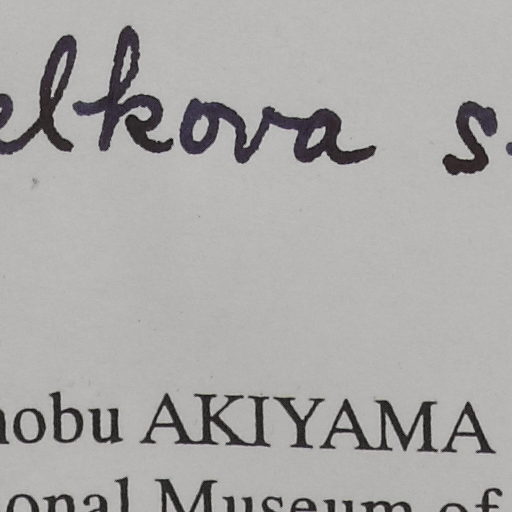 elkova s
nobu AKIYAMA
ional Museum of